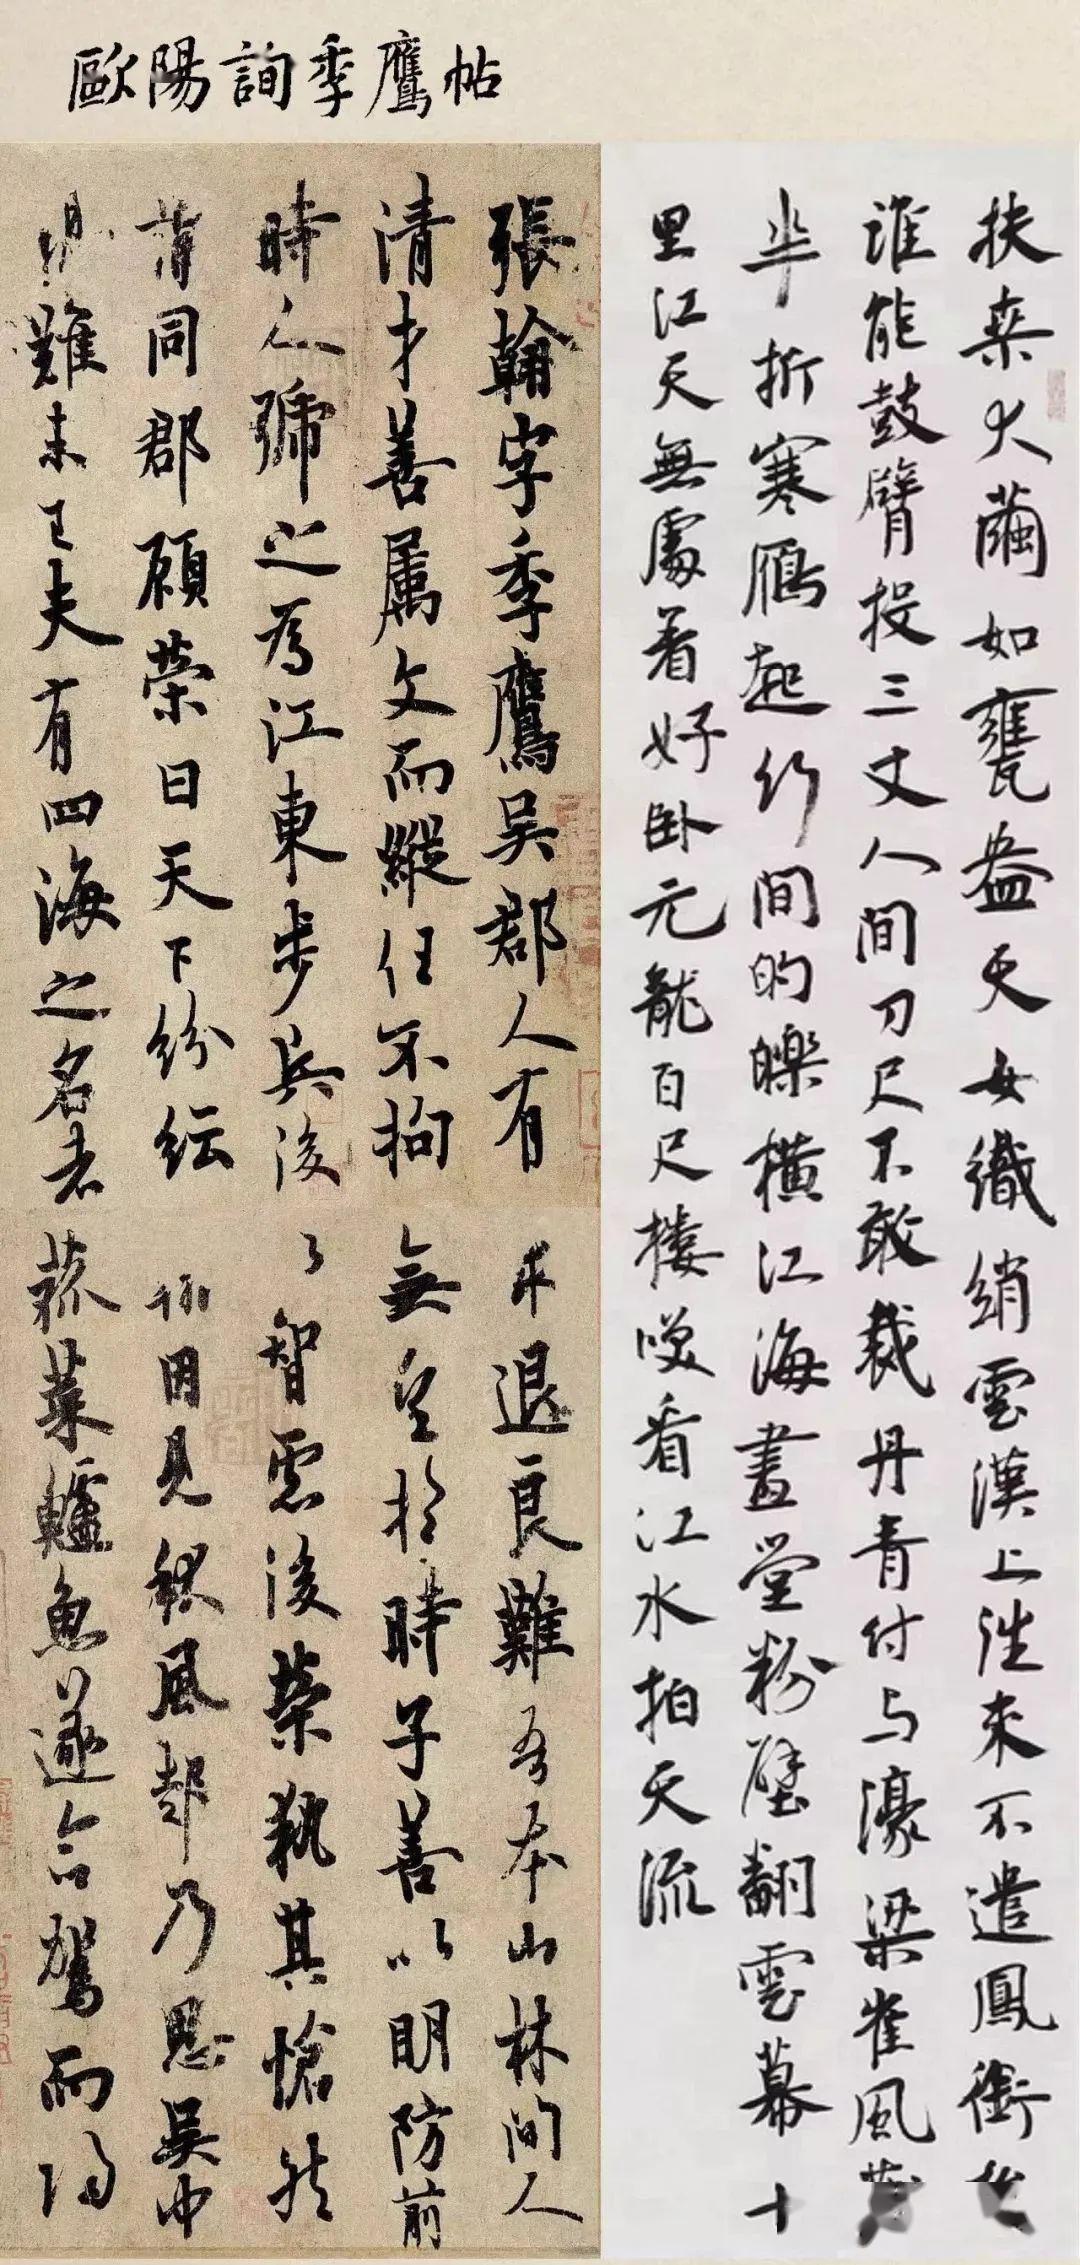 歐陽詢季鷹帖
扶桑大繭如甕盎天女織綃雲漢上往來不遣鳳銜
誰能鼓臂投三丈人間刀尺不敢裁丹青付与濠梁崔風
半折寒雁起竹間的皪橫江海畫堂粉壁翻雲幕十
里江天無處着好卧元龍百尺樓笑看江水拍天流
張翰字季鷹吳郡人有
清才善屬文而縱任不拘
時人號之為江東步兵後
謂同郡顧榮曰天下紛紜
禍難未已夫有四海之名者
求退良難吾本山林間人
無望於時子善以明防前
以智慮後榮執其愴然
翰因見秋風起乃思吳中
菰菜鱸魚遂命駕而歸